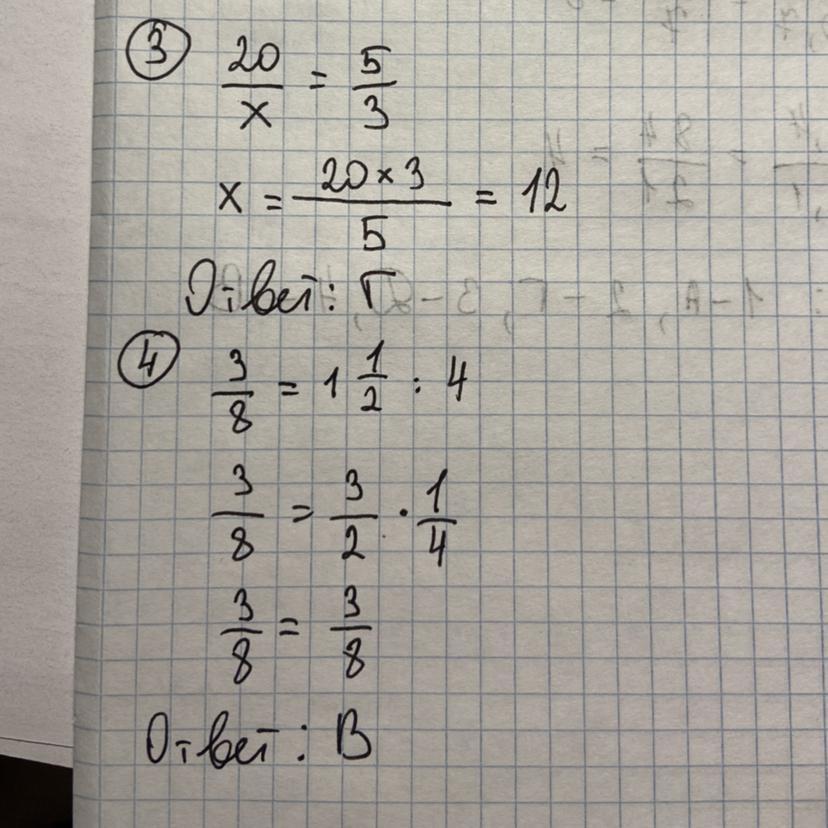 3
20/x = 5/3
x = (20 × 3)/5 = 12
Ответ: Г
4
3/8 = 1 1/2 : 4
3/8 = 3/2 · 1/4
3/8 = 3/8
Ответ: В